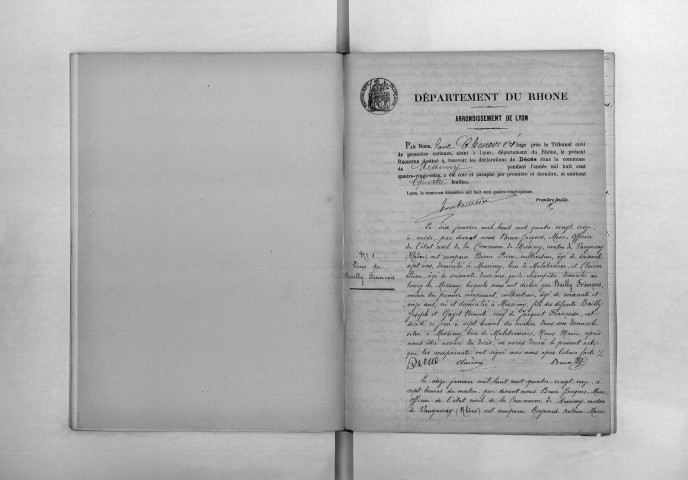 DÉPARTEMENT DU RHONE
ARRONDISSEMENT DE LYON
PAR NOUS, Juge près le Tribunal civil
de première instance, séant à Lyon, département du Rhône, le présent
REGISTRE destiné à recevoir les déclarations de Décès dans la commune
de Messimy pendant l'année mil huit cent
quatre-vingt-seize, a été coté et paraphé par première et dernière, et contient
feuilles.
Lyon, le trente-un décembre mil huit cent quatre-vingt-quinze.
Première feuille.
N° 1
Décès de
Bailly François
Le six janvier mil huit cent quatre vingt seize
à midi, par devant nous Brun Jacques, Maire, Officier
de l'état civil de la Commune de Messimy, canton de Vaugneray
(Rhône) ont comparu Pierre, cultivateur, âgé de soixante
sept ans, domicilié à Messimy, lieu de et
Pierre, âgé de soixante deux ans, garde champêtre, domicilié au
bourg de Messimy, lesquels nous ont déclaré que Bailly François,
cousin du premier comparant, cultivateur, âgé de soixante et
onze ans, né et domicilié à Messimy, fils des défunts Bailly
Joseph et Benoite, veuf de Françoise, est
décédé ce jour à sept heures du matin dans son domicile
situé à Messimy, lieu de Nous Maire, après
nous être assuré du décès, en avons dressé le présent acte
que les comparants ont signé avec nous après lecture faite
Brun
Le onze janvier mil huit cent quatre vingt seize, à
sept heures du matin, par devant nous Brun Jacques, Maire
officier de l'état civil de la Commune de Messimy, canton
de Vaugneray (Rhône) ont comparu Antoine Marie